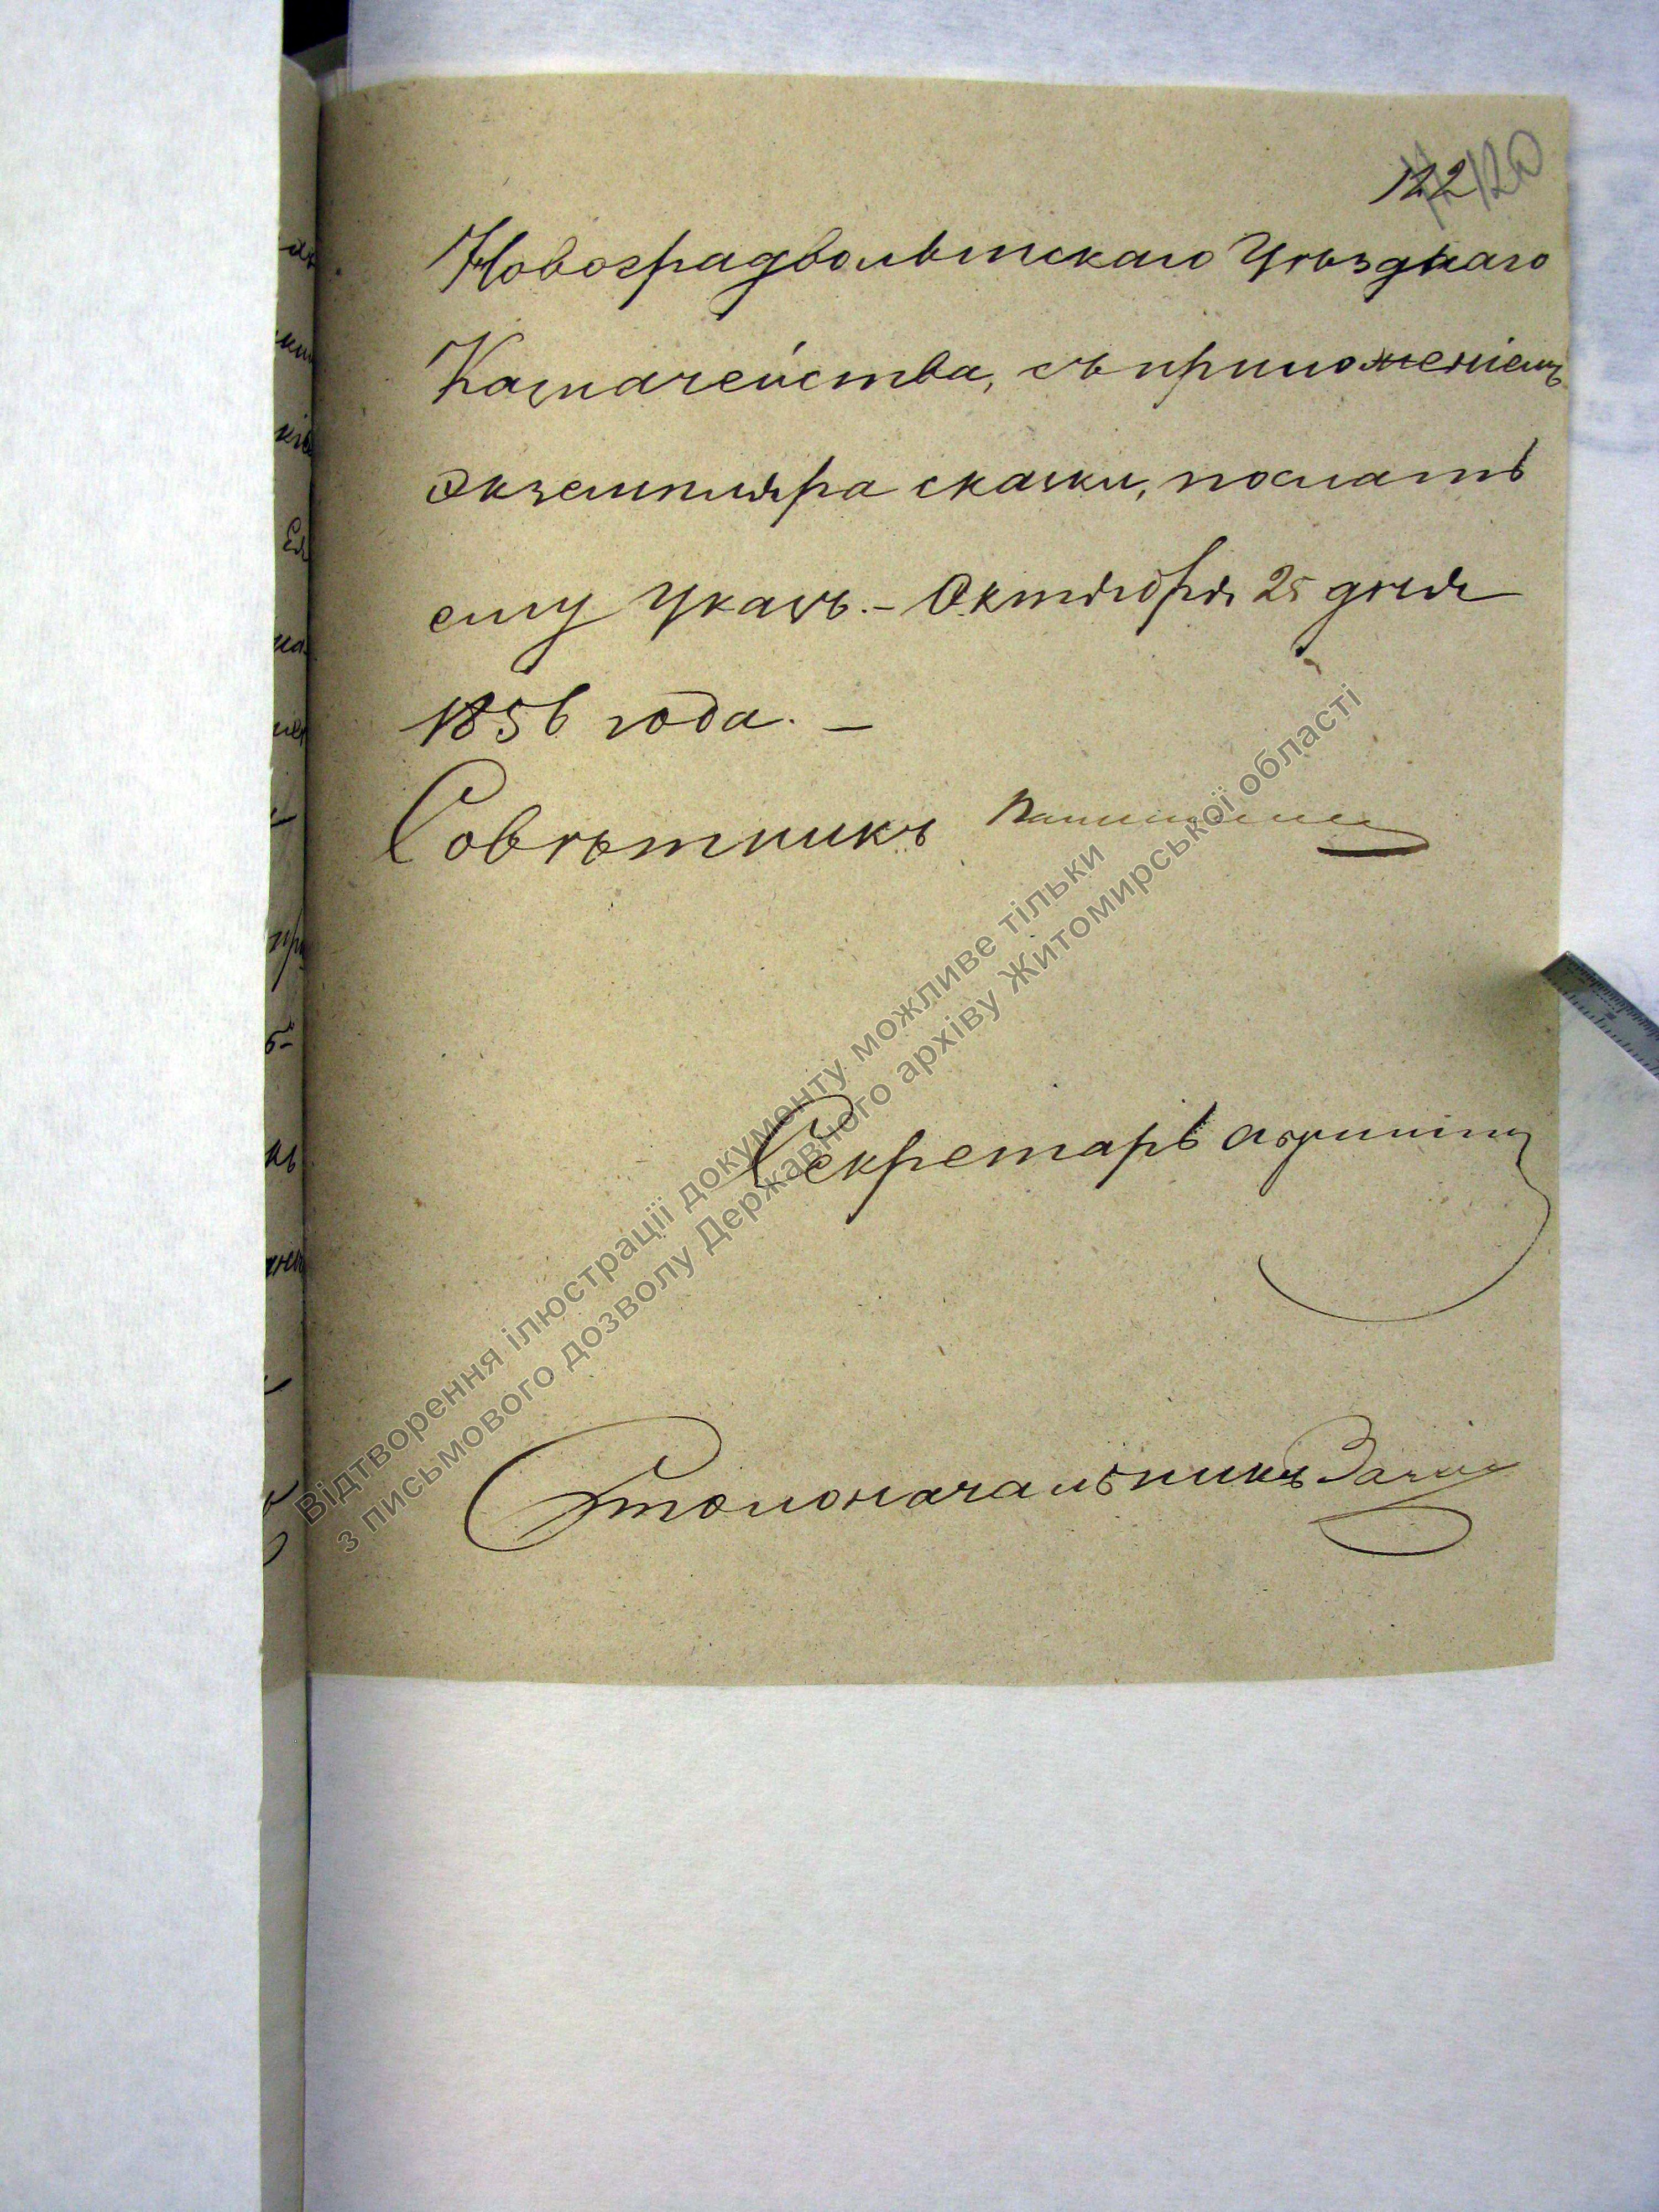 122 120
Новоградволынскаго Уѣзднаго
Казначейства, съ приложеніемъ
экземпляра сказки, послать
ему Указъ. – Октября 25 дня
1856 года. –
Совѣтникъ
Секретарь
Столоначальникъ
Відтворення ілюстрації документу можливе тільки
з письмового дозволу Державного архіву Житомирської області